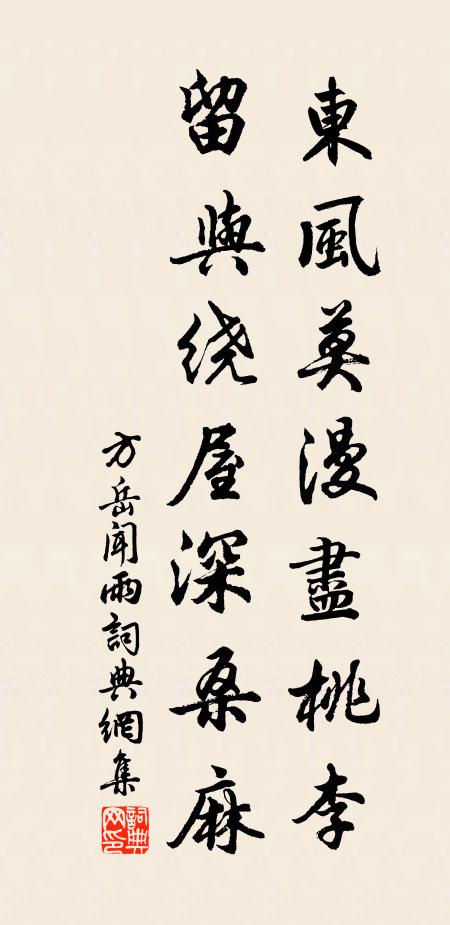 東風莫漫盡桃李
留與绕屋深桑麻
方岳闻雨詞典網集
詞典网印